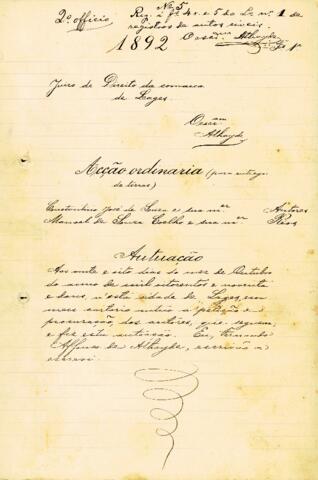 Nº 5
2º officio Reg. à fs 4 v. e 5 do L. nº 1 de
registros de autos civeis.
1892 Athayde
Fs 1
Juizo de Direito da comarca
de Lages
Escr.am
Athayde
Acção ordinaria (para entrega
de terras)
José de Souza e sua mer Autores
Manoel de Souza Coelho e sua mer Réos
Autuação
Aos vinte e oito dias do mez de Outubro
do anno de mil oitocentos e noventa
e dous, n'esta cidade de Lages, em
meu cartorio autuo a petição e
procuração dos autores, que seguem,
e fiz esta autuação. Eu, Fernando
Affonso de Athayde, escrivão o
escrevi.